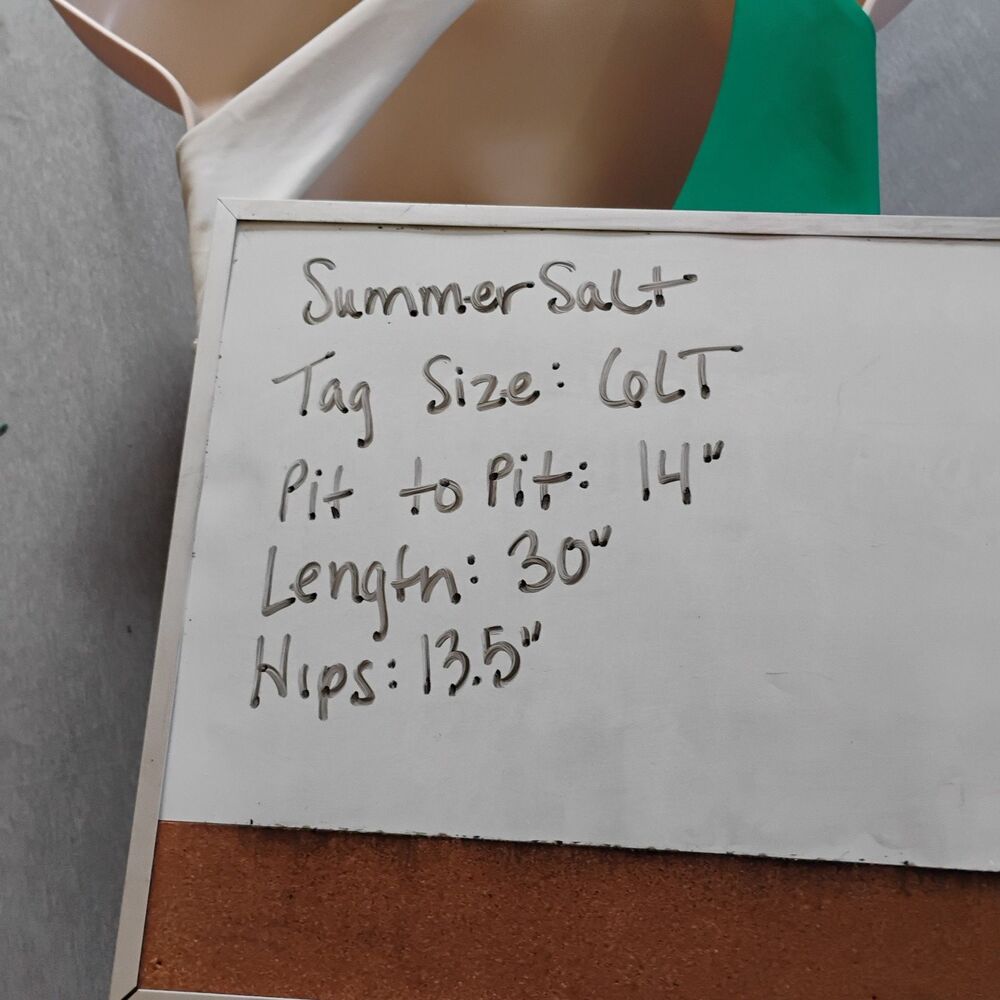 Summer Salt
Tag Size: 6LT
Pit to Pit: 14"
Length: 30"
Hips: 13.5"